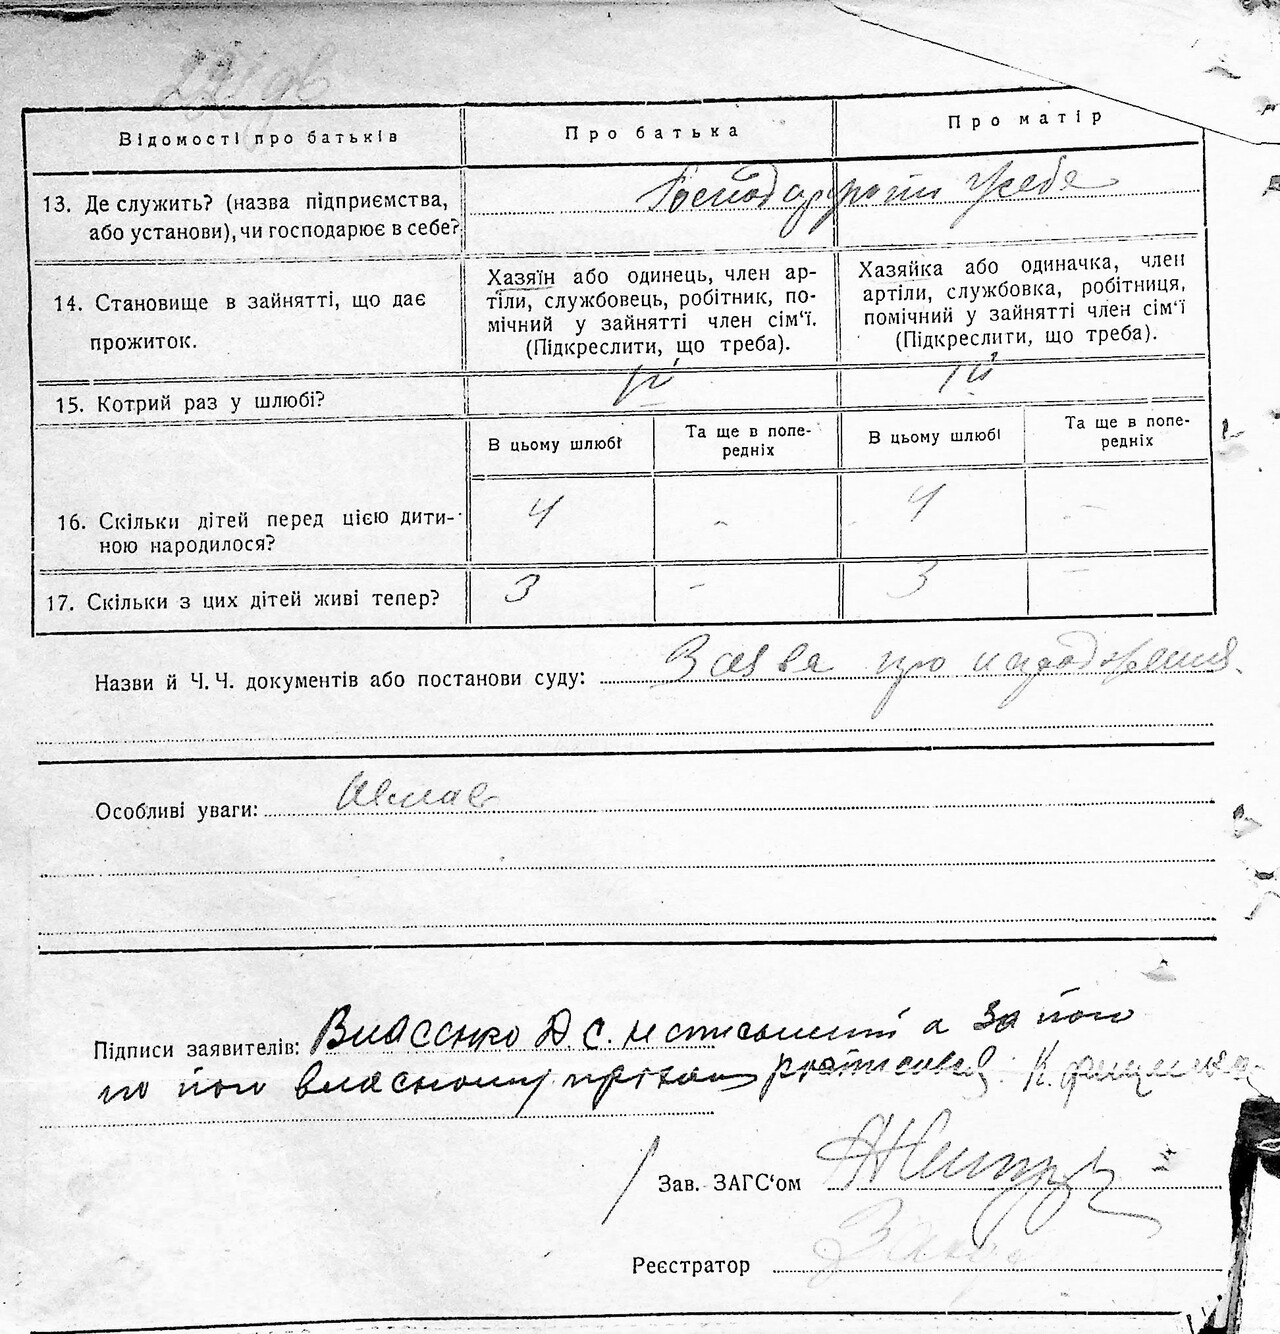 Відомості про батьків
Про батька
Про матір
13. Де служить? (назва підприємства,
або установи), чи господарює в себе?
у себе
14. Становище в зайнятті, що дає
прожиток.
Хазяїн або одинець, член ар-
тіли, службовець, робітник, по-
мічний у зайнятті член сім‘ї.
(Підкреслити, що треба).
Хазяйка або одиначка, член
артіли, службовка, робітниця,
помічний у зайнятті член сім‘ї
(Підкреслити, що треба).
15. Котрий раз у шлюбі?
1й
1й
В цьому шлюбі
Та ще в попе-
редніх
В цьому шлюбі
Та ще в попе-
редніх
16. Скільки дітей перед цією дити-
ною народилося?
4
-
4
-
17. Скільки з цих дітей живі тепер?
3
-
3
-
Назви й Ч. Ч. документів або постанови суду: Заява про народження
Особливі уваги: Немає
Підписи заявителів: Власенко Д. С. а за його
по його власному
Зав. ЗАГС‘ом
Реєстратор